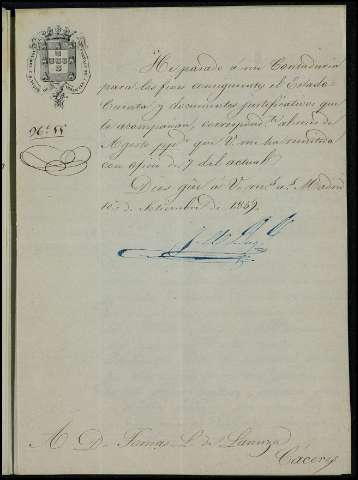 He pasado á mi Contaduría
para los fines consiguientes el Estado-
Cuenta y documentos justificativos que
la acompañan, correspond.te al mes de
Agosto ppdo que V. me ha remitido
con oficio de 7 del actual.
Dios gue á V. m.s a.s Madrid
10 de Setiembre de 1859.
A D. Tomás L. de Lanuza
Cáceres